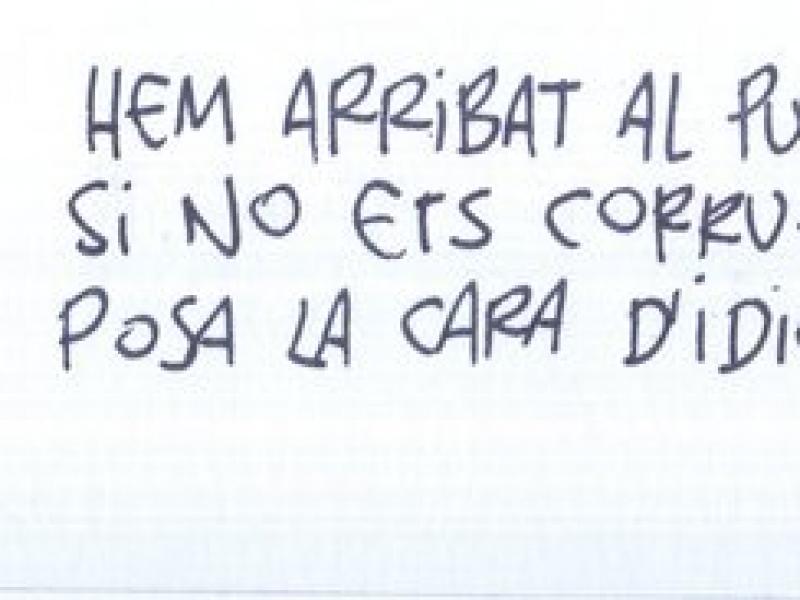 HEM ARRiBAT AL PU
Si NO ETS CORRU
POSA LA CARA D'iDi